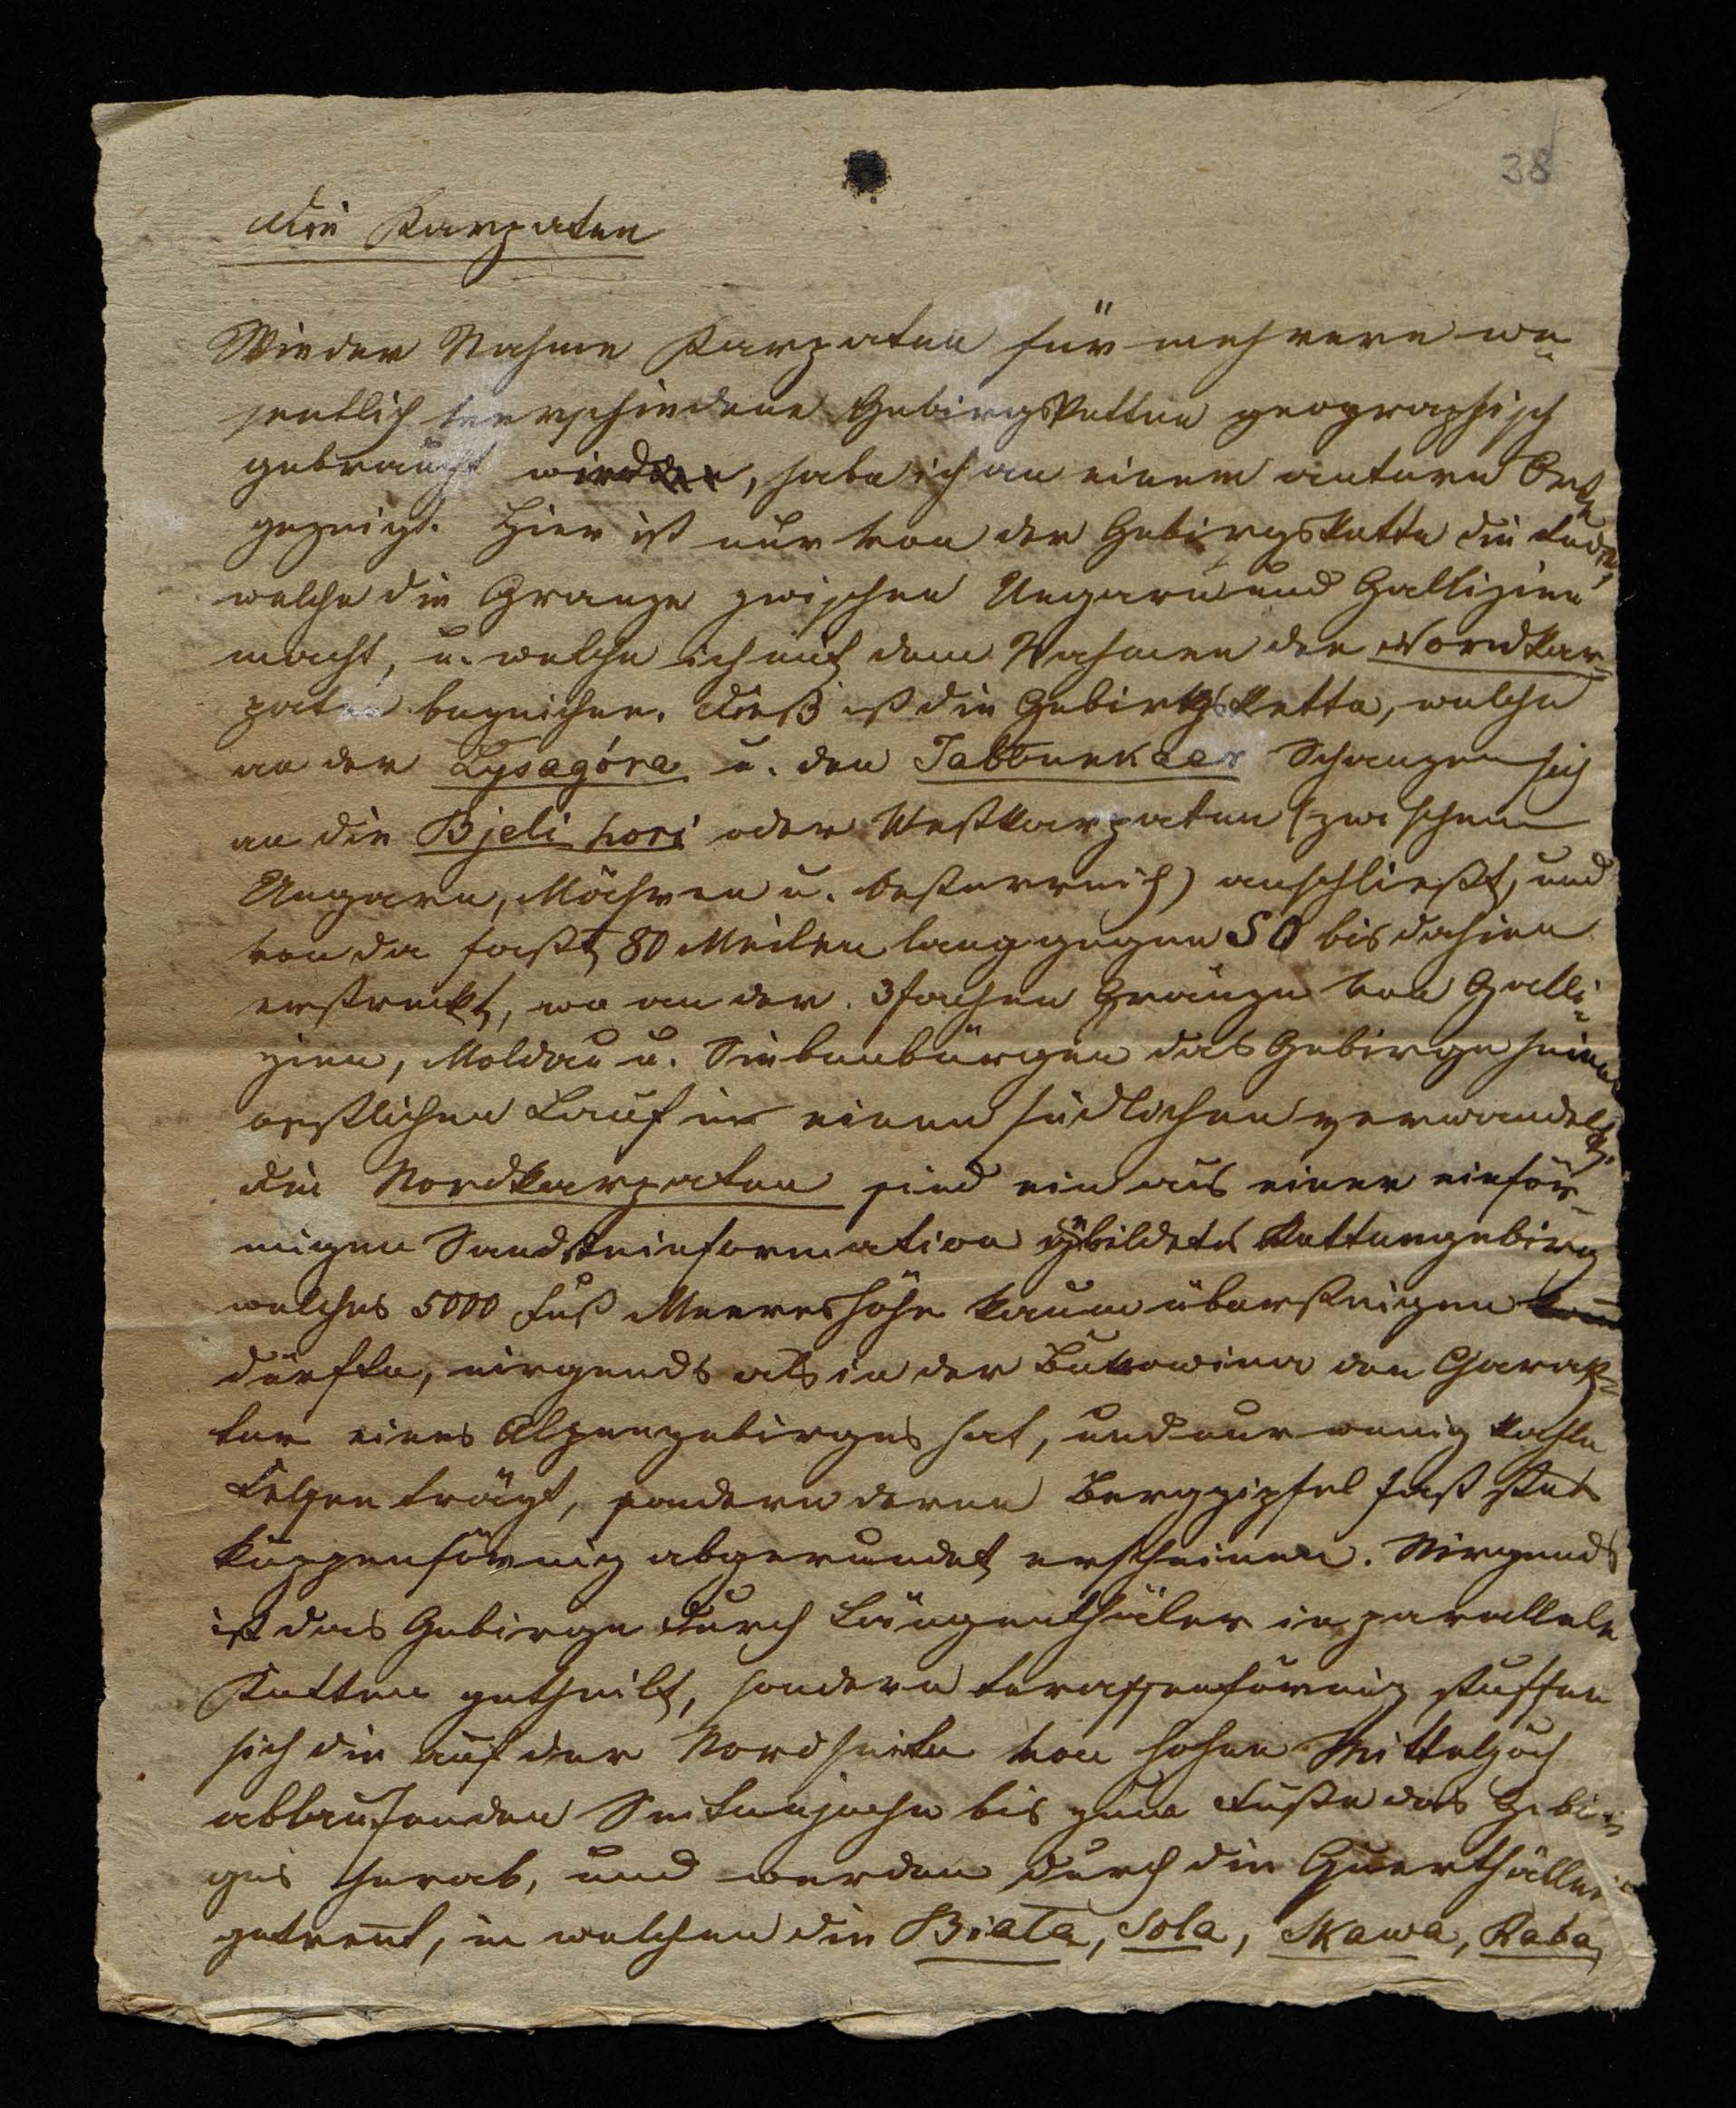 38
Die Karpaten
Wie der Nahme Karpaten für mehrere we=
sentlich verschiedene Gebirgsketten geographisch
gebraucht wird, habe ich an einem antern Orte
gezeigt. Hier ist nur von der Gebirgskette die Rede,
welche die Granze zwischen Ungarn und Gallizien
macht, u. welche ich mit dem Nahmen der Nordkar=
paten bezeichne. Dieß ist die Gebirgskette, welche
an der Lysagóra u. den Jablunkaer Schanzen sich
an die Bjeli hori oder Westkarpaten (zwischen
Ungarn, Mähren u. Oesterreich) anschließt, und
von da fast 80 Meilen lang gegen SO bis dahin
erstreckt, wo an der 3fachen Gränze von Galli=
zien, Moldau u. Siebenbürgen das Gebirge seinen
oestlichen Lauf in einen südlichen verwandelt.
Die Nordkarpaten sind ein aus einer einför=
migen Sandsteinformation gebildetes Kettengebirg
welches 5000 Fuß Meereshöhe kaum übersteigen
dürfte, nirgends als in der Bukowina den Charak=
ter eines Alpengebirges hat, und nur wenig kahle
Felsen trägt, sondern deren Berggipfel fast stets
kuppenförmig abgerundet erscheinen. Nirgends
ist das Gebirge durch Längenthäler in parallele
Ketten getheilt, sondern terassenförmig stuffen
sich die auf der Nordseite von hohen Mitteljoch
ablaufenden Seitenjoche bis zum Fuße des Gebir=
ges herab, und werden durch die Querthäller
getrent, in welchen die Biała, Sola, Skawa, Raba,